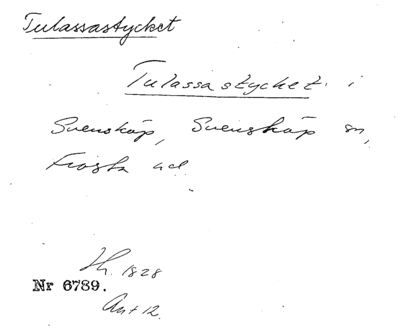 Tulassastycket
Tulassastycket i
Svensköp, Svensköp sn,
Frosta hd
Lh. 1828
Nr 6789.
Akt 12.